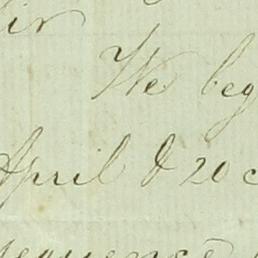 ir
We beg
April & 20 c
sequence